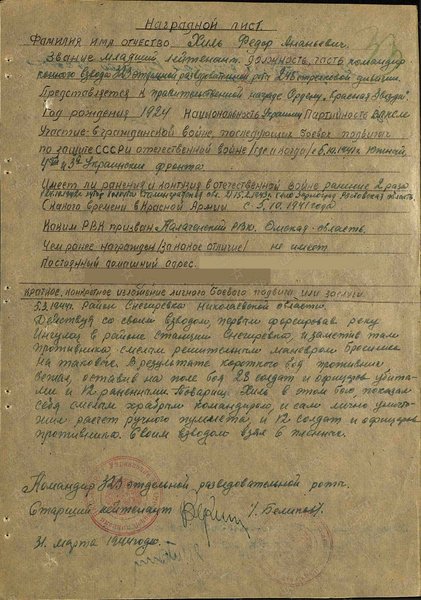 Наградной лист.
Фамилия имя отчество Хиль Федор Ананьевич.
Звание младший лейтенант. Должность, часть командир
взвода 323 отдельной разведывательной роты 248 стрелковой дивизии.
Представляется к правительственной награде Ордену "Красная Звезда".
Год рождения 1924 Национальность Украинец Партийность
Участие в гражданской войне, последующих боевых
по защите СССР и отечественной войне (где и когда) с 6.10.1941г. Южный,
4й и 3й Украинские фронта.
Имеет ли ранения и контузия в отечественной войне ранение 2 раза
область
Скакого времени в Красной Армии с 5.10.1941 года
Каким РВК призван РВК. Омская область
Чем ранее награжден (за какое отличие) не имеет
Постоянный домашний адрес.
краткое, конкретное изложение личного боевого подвига или заслуги
5.3.1944г. Район Снегиревка Николаевской области.
Действуя со своим взводом, первым форсировал реку
Ингулец в районе станции Снегиревка, и заметив там
противника смелым решительным маневром бросился
на таковых. В результате короткого боя противник
бежал, оставив на поле боя 28 солдат и офицеров убиты-
ми и 12 ранеными. Товарищ Хиль в этом бою, показал
себя смелым храбрым командиром, и сам лично уничто-
жил расчет ручного пулемета, и 12 солдат и офицеров
противника. Своим взводом взял 6 пленных.
Командир 323 отдельной разведовательной роты.
Старший лейтенант /Беликов/.
31. марта 1944 года.